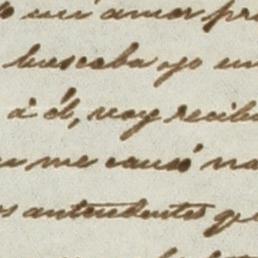 mi amor pro
buscaba yo en
a él, voy recib
me causó na
antecedentes q